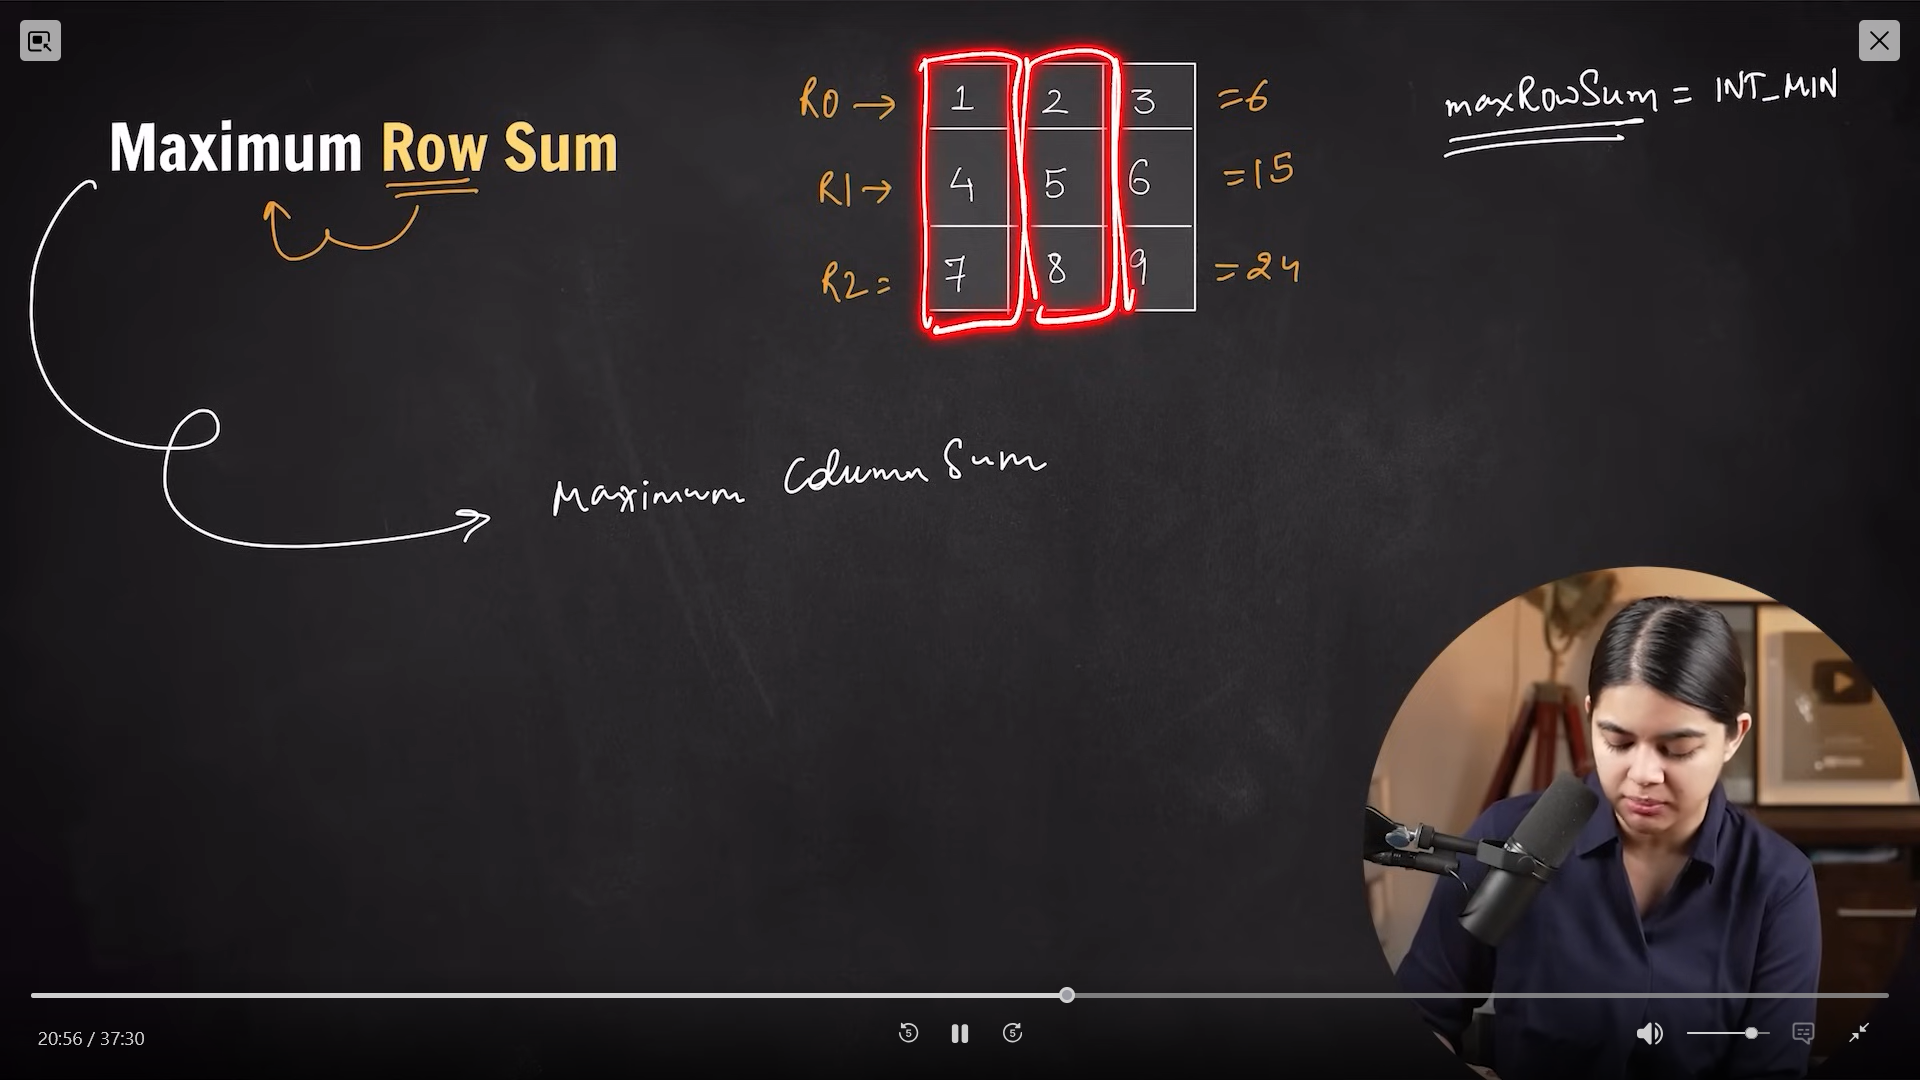 Maximum Row Sum
R0 → 1 2 3 =6
R1 → 4 5 6 =15
R2 = 7 8 9 =24
maxRowSum = INT_MIN
Maximum Column Sum
20:56 / 37:30
5 5